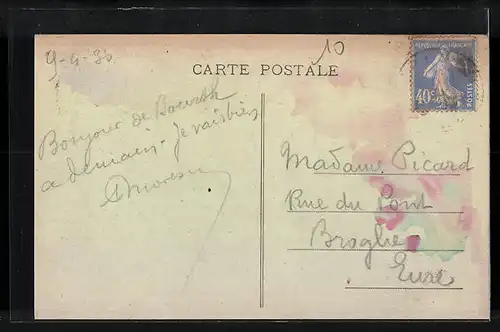 9-4-30
10
CARTE POSTALE
REPUBLIQUE FRANÇAISE
40c
POSTES
Bonjour de Bourth
a demain. je vais bien
Madame Picard
Rue du Pont
Broglie
Eure